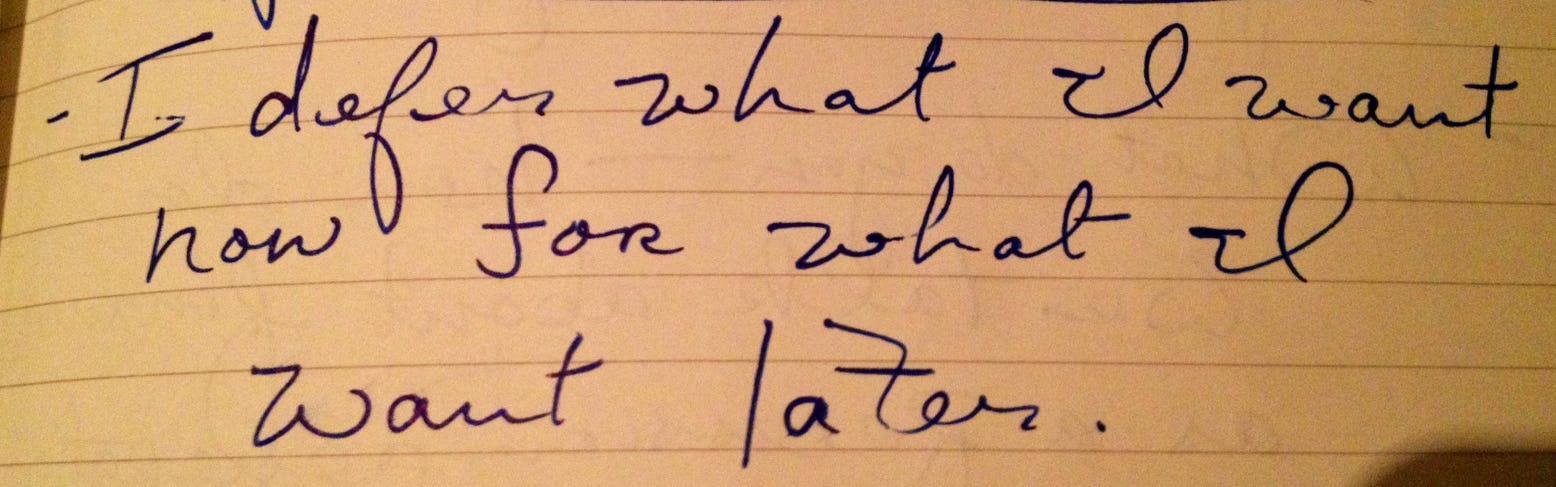 - I defer what I want
now for what I
want later.